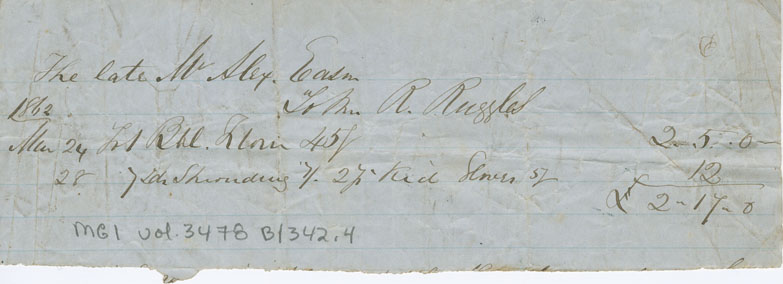 The late Mr Alex. Eason
1862 To Wm R. Ruggles
Mar 24 To 1 Bbl. Flour 45/ 2-5-0
28 7 yds Shrouding 1/. 2 pr Kid Gloves 5/ 12
£ 2-17-0
MG1 vol. 3478 B1342.4